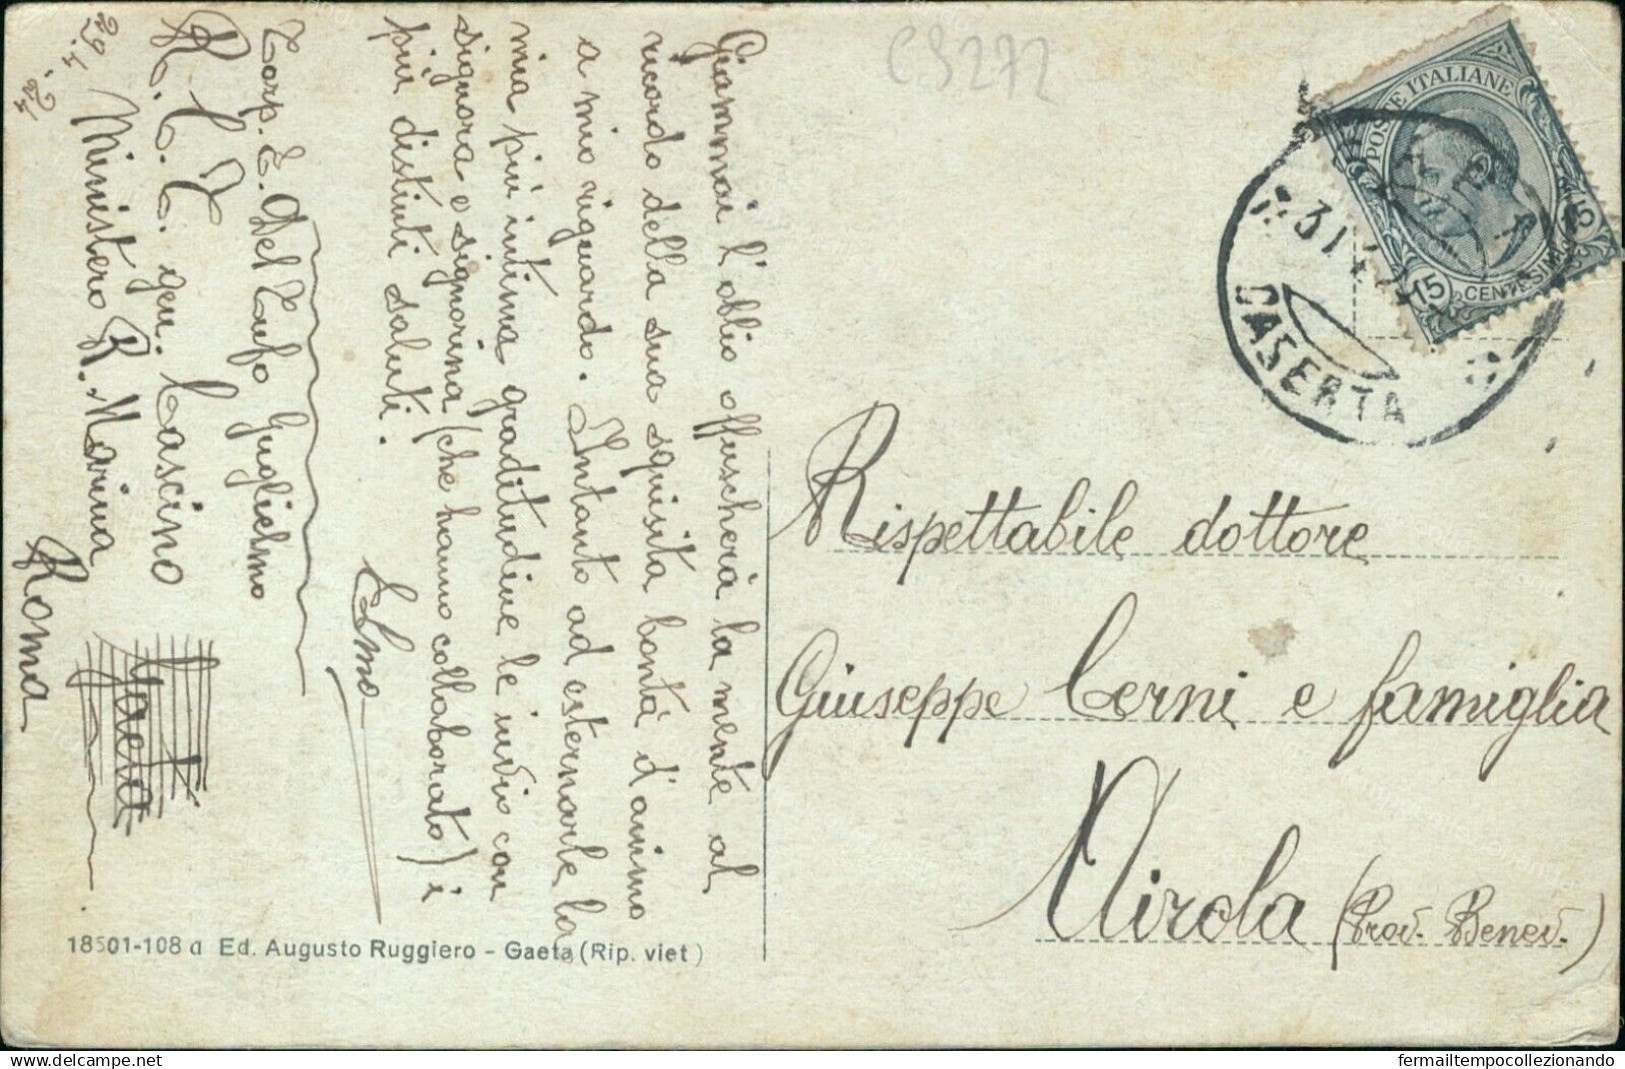 C9272
Giammai l'oblio offuscherà la mente al
ricordo della sua squisita bontà d'animo
a mio riguardo. Intanto ad esternarle la
mia più intima gratitudine le invio con
signora e signorina (che hanno collaborato) i
più distinti saluti.
Elmo
Torp. E. Del Tufo Guglielmo
R. C. T. gen. Cascino
Ministero R. Marina
Roma
Gaeta
29.4.24
POSTE ITALIANE
15
15
CENTESIMI
GAETA
CASERTA
Rispettabile dottore
Giuseppe Cerni e famiglia
Airola (Prov. Benev.)
18501-108 a Ed. Augusto Ruggiero - Gaeta (Rip. viet)
fermailtempocollezionando